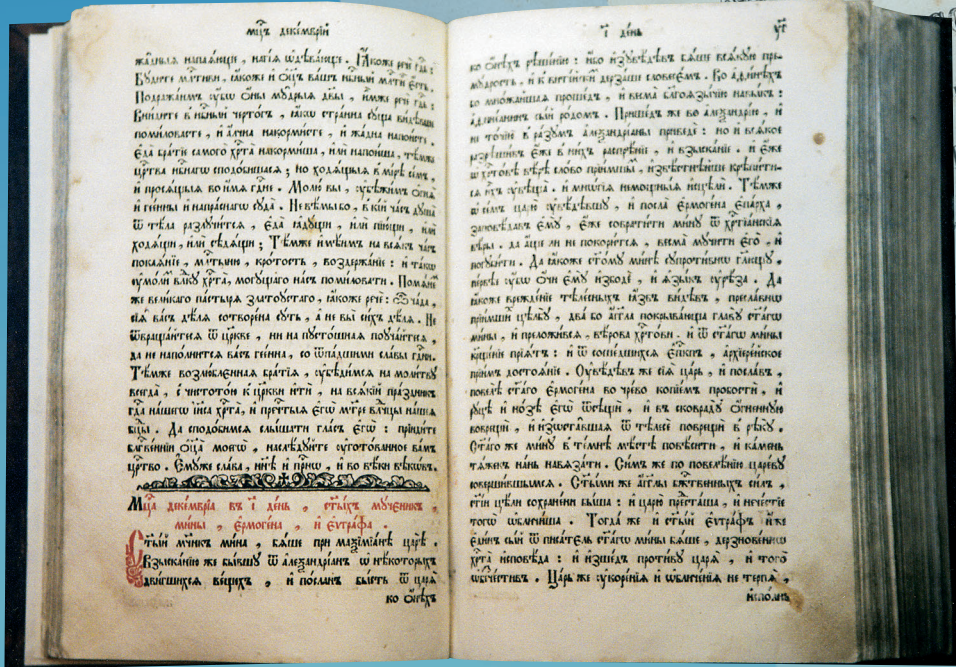 мц҃ъ декемврїй
жа́дныѧ напаѧ́ющи, наги́ѧ ѡ҆дѣва́ющe. Ꙗ҆́коже речѐ гдⷭ҇ь:
Бу́дите млⷭ҇тиви, ꙗ҆́коже и҆ ѻ҆ц҃ъ ва́шъ нбⷭ҇ный млⷭ҇тивъ є҆́сть.
Подража́имъ ᲂу҆́бо ѻ҆́ны мꙋ́дрыѧ дв҃ы, и҆̀мже речѐ гдⷭ҇ь:
Вни́дите в нбⷭ҇ный черто́гъ, ꙗ҆́кѡ стра́нна сꙋ́ща ви́дѣвше
поми́ловасте, и҆ а҆́лчна накорми́сте, и҆ жа́дна напои́сте.
Є҆да̀ бра́тїе самого̀ хрⷭ҇та̀ накорми́ша, и҆лѝ напои́ша, тѣ́мже
црⷭ҇тва нбⷭ҇нагѡ сподо́бишасѧ; но ходѧ́щыѧ в ми́рѣ се́мъ,
и҆ просѧ́щыѧ во и҆́мѧ гдⷭ҇не. Молю̀ вы̀, ᲂу҆бѣжи́мъ ѻ҆гнѧ̀
и҆ гее́нны и҆ напра́снагѡ сꙋда̀. Не вѣ́мы бо, в кі́й ча́съ дꙋша̀
ѿ тѣ́ла разлꙋчи́тсѧ, є҆да̀ ꙗ҆дꙋ́щи, и҆лѝ пїю́щи, и҆лѝ
ходѧ́щи, и҆лѝ сѣдѧ́щи; Тѣ́мже и҆мѣ́имъ на всѧ́къ ча́съ
покаѧ́нїе, млⷭ҇тыню, кро́тость, воздержа́нїе: и҆ та́кѡ
ᲂу҆моли́мъ влⷣкꙋ хрⷭ҇та̀, могꙋ́щаго на́съ поми́ловати. Помѧне́мъ
же вели́каго па́стырѧ златоꙋ́стаго, ꙗ҆́коже речѐ: Ѽ ча́да,
сїѧ̀ ва́съ дѣ́лѧ сотворе́на сꙋ́ть, а҆ не вы̀ си́хъ дѣ́лѧ. Не
ѿвраща́йтесѧ ѿ цр҃кве, ни на пꙋсто́шнаѧ поꙋча́йтесѧ,
да не напо́лнитсѧ ва́съ гее́нна, со ѿпа́дшими сла́вы гдⷭ҇ни.
Тѣ́мже возлю́бленнаѧ бра́тїѧ, ᲂу҆бѣди́мсѧ на моли́твꙋ
всегда̀, с чистото́ю к цр҃кви и҆тѝ, на всѧ́кїй пра́здникъ
гдⷭ҇а на́шегѡ і҆и҃са хрⷭ҇та̀, и҆ пречⷭ҇тыѧ є҆гѡ̀ мт҃ре влⷣчцы на́шеѧ
бцⷣы. Да сподо́бимсѧ слы́шати гла́съ є҆гѡ̀: прїиди́те
блгⷭ҇ве́ннїи ѻ҆ц҃а̀ моегѡ̀, наслѣ́дꙋйте ᲂу҆гото́ванное ва́мъ
црⷭ҇тво. Є҆мꙋ́же сла́ва, нн҃ѣ и҆ при́снѡ, и҆ во вѣ́ки вѣкѡ́въ.
Мцⷭ҇а декемврїа въ і҃ де́нь, ст҃ы́хъ мꙋ́ченикъ,
ми́ны, є҆рмоге́на, и҆ є҆vгра́фа.
Ст҃ы́й мч҃нкъ ми́на, бѧ́ше при маѯїмїа́нѣ царѐ.
Взыска́нїю же бы́вшꙋ ѿ а҆леѯандрїа́нъ ѡ҆ нѣ́которыхъ
дви́гшихсѧ ве́щехъ, и҆ по́сланъ бы́сть ѿ царѧ̀
ко ѻ҆нѣ́хъ
і҃ де́нь
ко ѻ҆нѣ́хъ рѣше́нїю: и҆́бо и҆зꙋвѣ́дѣвъ бѧ́ше всѧ́кꙋю пре-
мꙋ́дрость, и҆ к вити́йствꙋ дерза́ѧ слове́семъ. Во а҆ѳи́нѣхъ
во мно́жайшаѧ проше́дъ, и҆ весма̀ бл҃гоѧзы́чїю навы́къ:
а҆ѳине́анинъ сы́й ро́домъ. Прише́дъ же во а҆леѯандрі́ю, и҆
не то́чїю в ра́зꙋмъ а҆леѯандрїа́ны приведѐ: но и҆ всѧ́кое
разрѣши́въ є҆́же в ни́хъ распрѣ́нїе, и҆ взыска́нїе. и҆ є҆́же
ѡ҆ хрⷭ҇то́вѣ вѣ́рѣ сло́во прїи́мшы, и҆звѣ́стнѣйше крⷭ҇ти́ти-
сѧ и҆̀хъ ᲂу҆вѣща̀. и҆ мнѡ́гїѧ немощны́ѧ и҆сцѣлѝ. Тѣ́мже
ѡ҆ се́мъ царю̀ ᲂу҆вѣ́дѣвшꙋ, и҆ посла̀ є҆рмоге́на є҆па́рха,
заповѣ́давъ є҆мꙋ̀, є҆́же соврати́ти ми́нꙋ ѿ хрⷭ҇тїа́нскїѧ
вѣ́ры. да а҆́ще ли не покори́тсѧ, весма̀ мꙋ́чити є҆го̀, и҆
погꙋби́ти. Да ꙗ҆́коже ст҃о́мꙋ ми́нѣ сꙋпроти́внѡ гл҃ющꙋ,
пе́рвѣе ᲂу҆́бѡ ѻ҆́чи є҆мꙋ̀ и҆збодѐ, и҆ ꙗ҆зы́къ ᲂу҆рѣ́за. Да
ꙗ҆́коже врежде́нїе тѣле́сныхъ ꙗ҆́звъ ви́дѣвъ, пресла́внѡ
прїи́мшїй цѣльбꙋ̀, два̀ бо а҆́гг҃ла покрыва́юща главꙋ̀ ст҃а́гѡ
ми́ны, и҆ преложи́всѧ, вѣ́рова хрⷭ҇то́ви. и҆ ѿ ст҃а́гѡ ми́ны
крⷭ҇ще́нїе прїѧ́тъ: и҆ ѿ соше́дшихсѧ є҆пⷭ҇кпъ, а҆рхїере́йское
прїи́мъ достоѧ́нїе. Оу҆вѣ́дѣвъ же сїѧ̀ ца́рь, и҆ посла́въ,
повелѣ̀ ст҃а́го є҆рмоге́на во чре́во копїе́мъ пробостѝ, и҆
рꙋ́цѣ и҆ но́зѣ є҆гѡ̀ ѿсѣщѝ, и҆ въ сковрадꙋ̀ ѻ҆́гненнꙋю
вовре́щѝ, и҆ и҆зѡста́вшаѧ ѿ тѣлесѐ поврещѝ в рѣкꙋ̀.
Ст҃а́го же ми́нꙋ в те́мнѣ мѣ́стѣ повѣ́сити, и҆ ка́мень
тѧ́жекъ на́нь навѧза́ти. Си́мъ же по повелѣ́нїю царе́вꙋ
соверши́вшымсѧ. Ст҃ы́ми же а҆́гг҃лы бж҃е́ственныхъ си́лъ,
ст҃і́и цѣ́ли сохране́ни бы́ша: и҆ царю̀ преста́ша, и҆ нече́стїе
тогѡ̀ ѡ҆бличи́ша. Тогда́ же и҆ ст҃ы́й є҆vгра́фъ и҆́же
є҆ди́нъ сы́й ѿ писа́тель ст҃а́гѡ ми́ны бѧ́ше, дерзнове́ннѡ
хрⷭ҇та̀ и҆сповѣ́да: и҆ и҆зше́дъ проти́вꙋ царѧ̀, и҆ того̀
ѡ҆безче́стивъ. Ца́рь же ᲂу҆коре́нїѧ и҆ ѡ҆бличе́нїѧ не терпѧ̀,
и҆спо́лнь